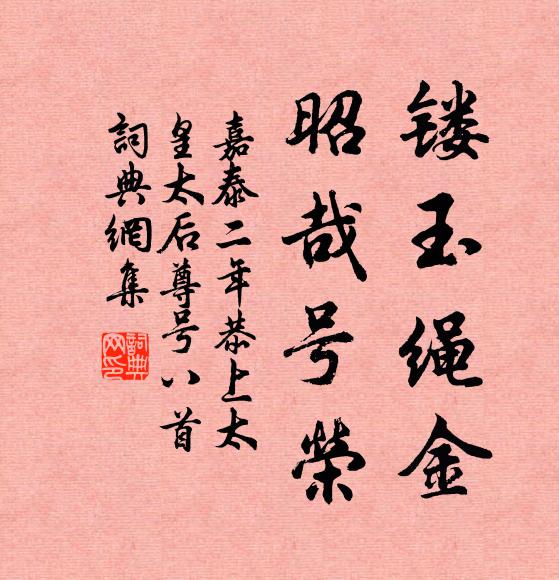 镂玉绳金
昭哉号荣
嘉泰二年恭上太
皇太后尊号八首
詞典網集
詞典网印